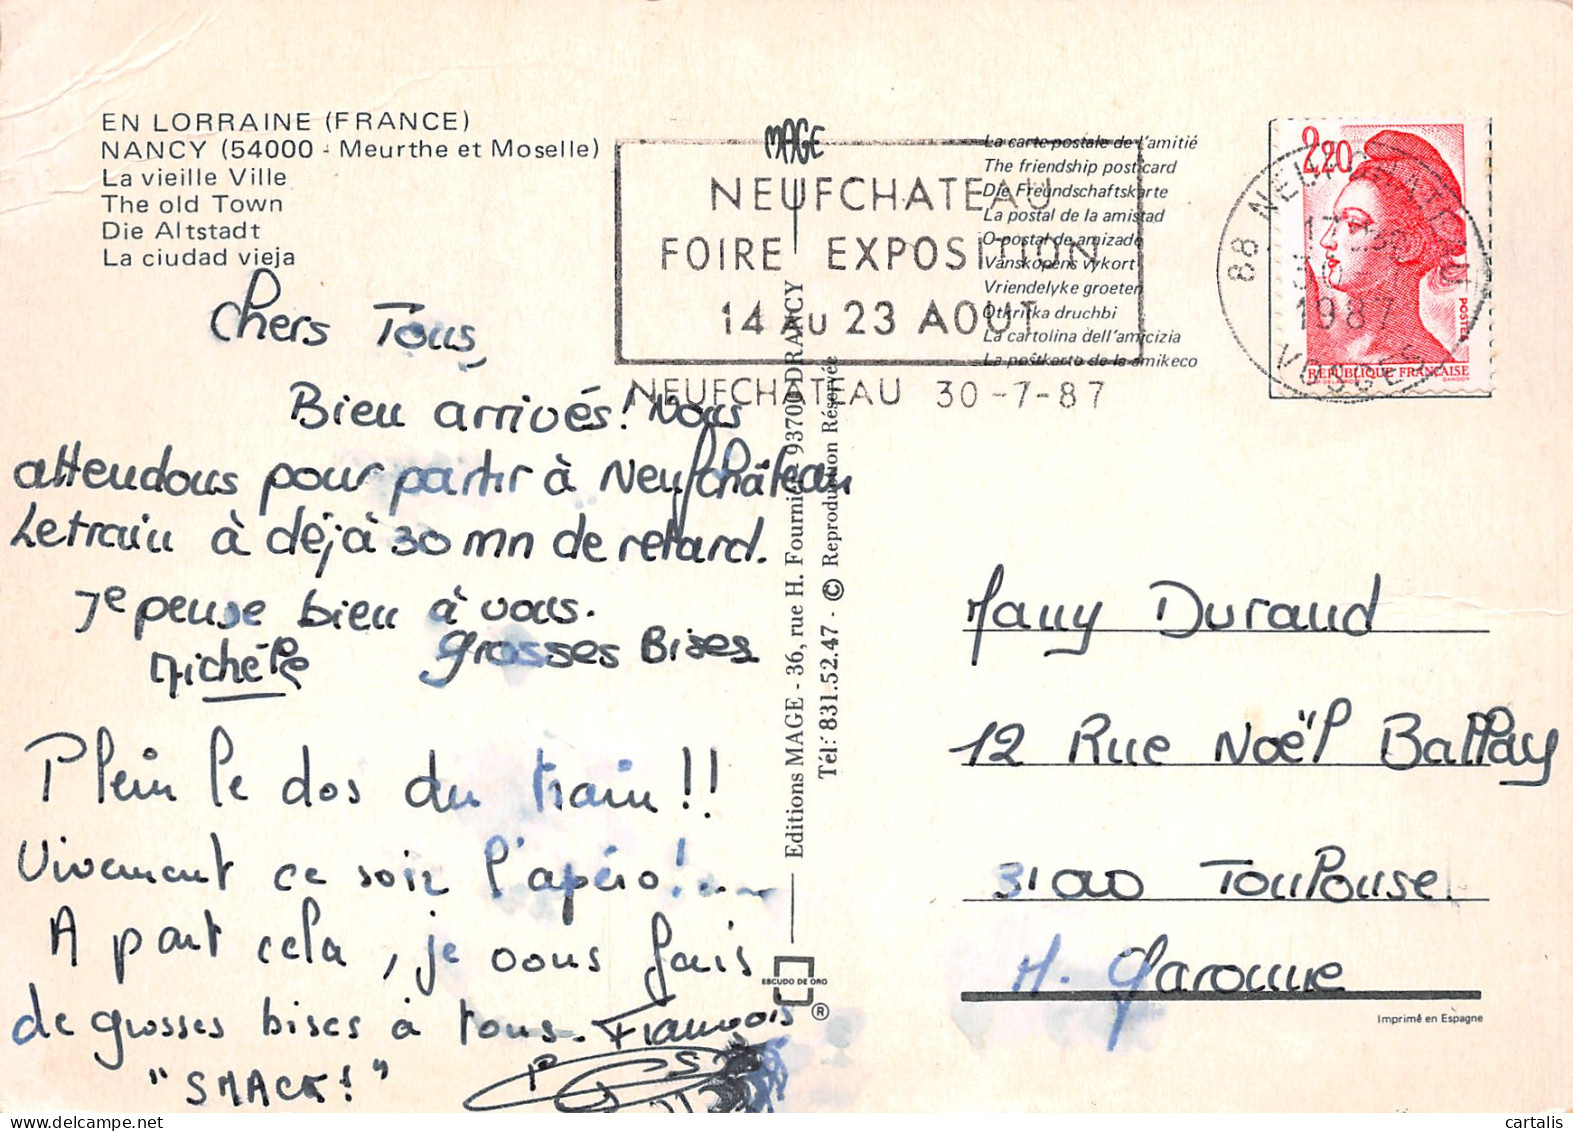 EN LORRAINE (FRANCE)
NANCY (54000 - Meurthe et Moselle)
La vieille Ville
The old Town
Die Altstadt
La ciudad vieja
MAGE
NEUFCHATEAU
FOIRE EXPOSITION
14 AU 23 AOUT
NEUFCHATEAU 30-7-87
La carte postale de l'amitié
The friendship postcard
Die Freundschaftskarte
La postal de la amistad
O postal de amizade
Vänskapens vykort
Vriendelyke groeten
Otkritka druchbi
La cartolina dell'amicizia
La poŝtkarto de la amikeco
2,20
POSTES
REPUBLIQUE FRANÇAISE
GANDON
88 NEUFCHATEAU
1987
VOSGES
Chers Tous,
Bien arrivés! Nous
attendons pour partir à Neufchâteau
Le train à déjà 30 mn de retard.
Je pense bien à vous.
Michèle grosses Bises
Plein le dos du train!!
Vivement ce soir l'apéro!...
A part cela, je vous fais
de grosses bises à tous. François
"SMACK!"
Editions MAGE - 36, rue H. Fournier 93700 DRANCY
Tél: 831.52.47 - © Reproduction Réservée
ESCUDO DE ORO
®
Many Durand
12 Rue Noël Ballay
31000 Toulouse
H. Garonne
Imprimé en Espagne
cartalis